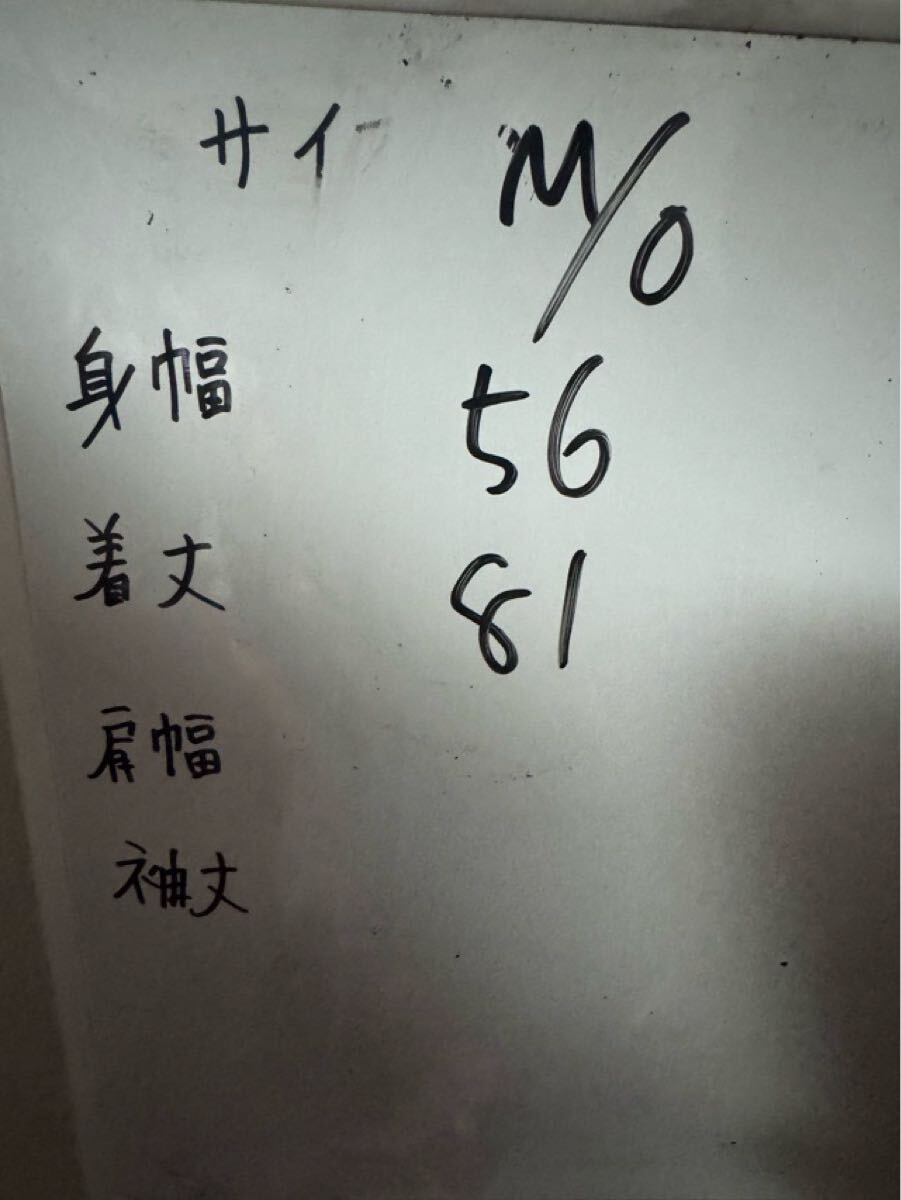 サイ M/O
身幅 56
着丈 81
肩幅
袖丈